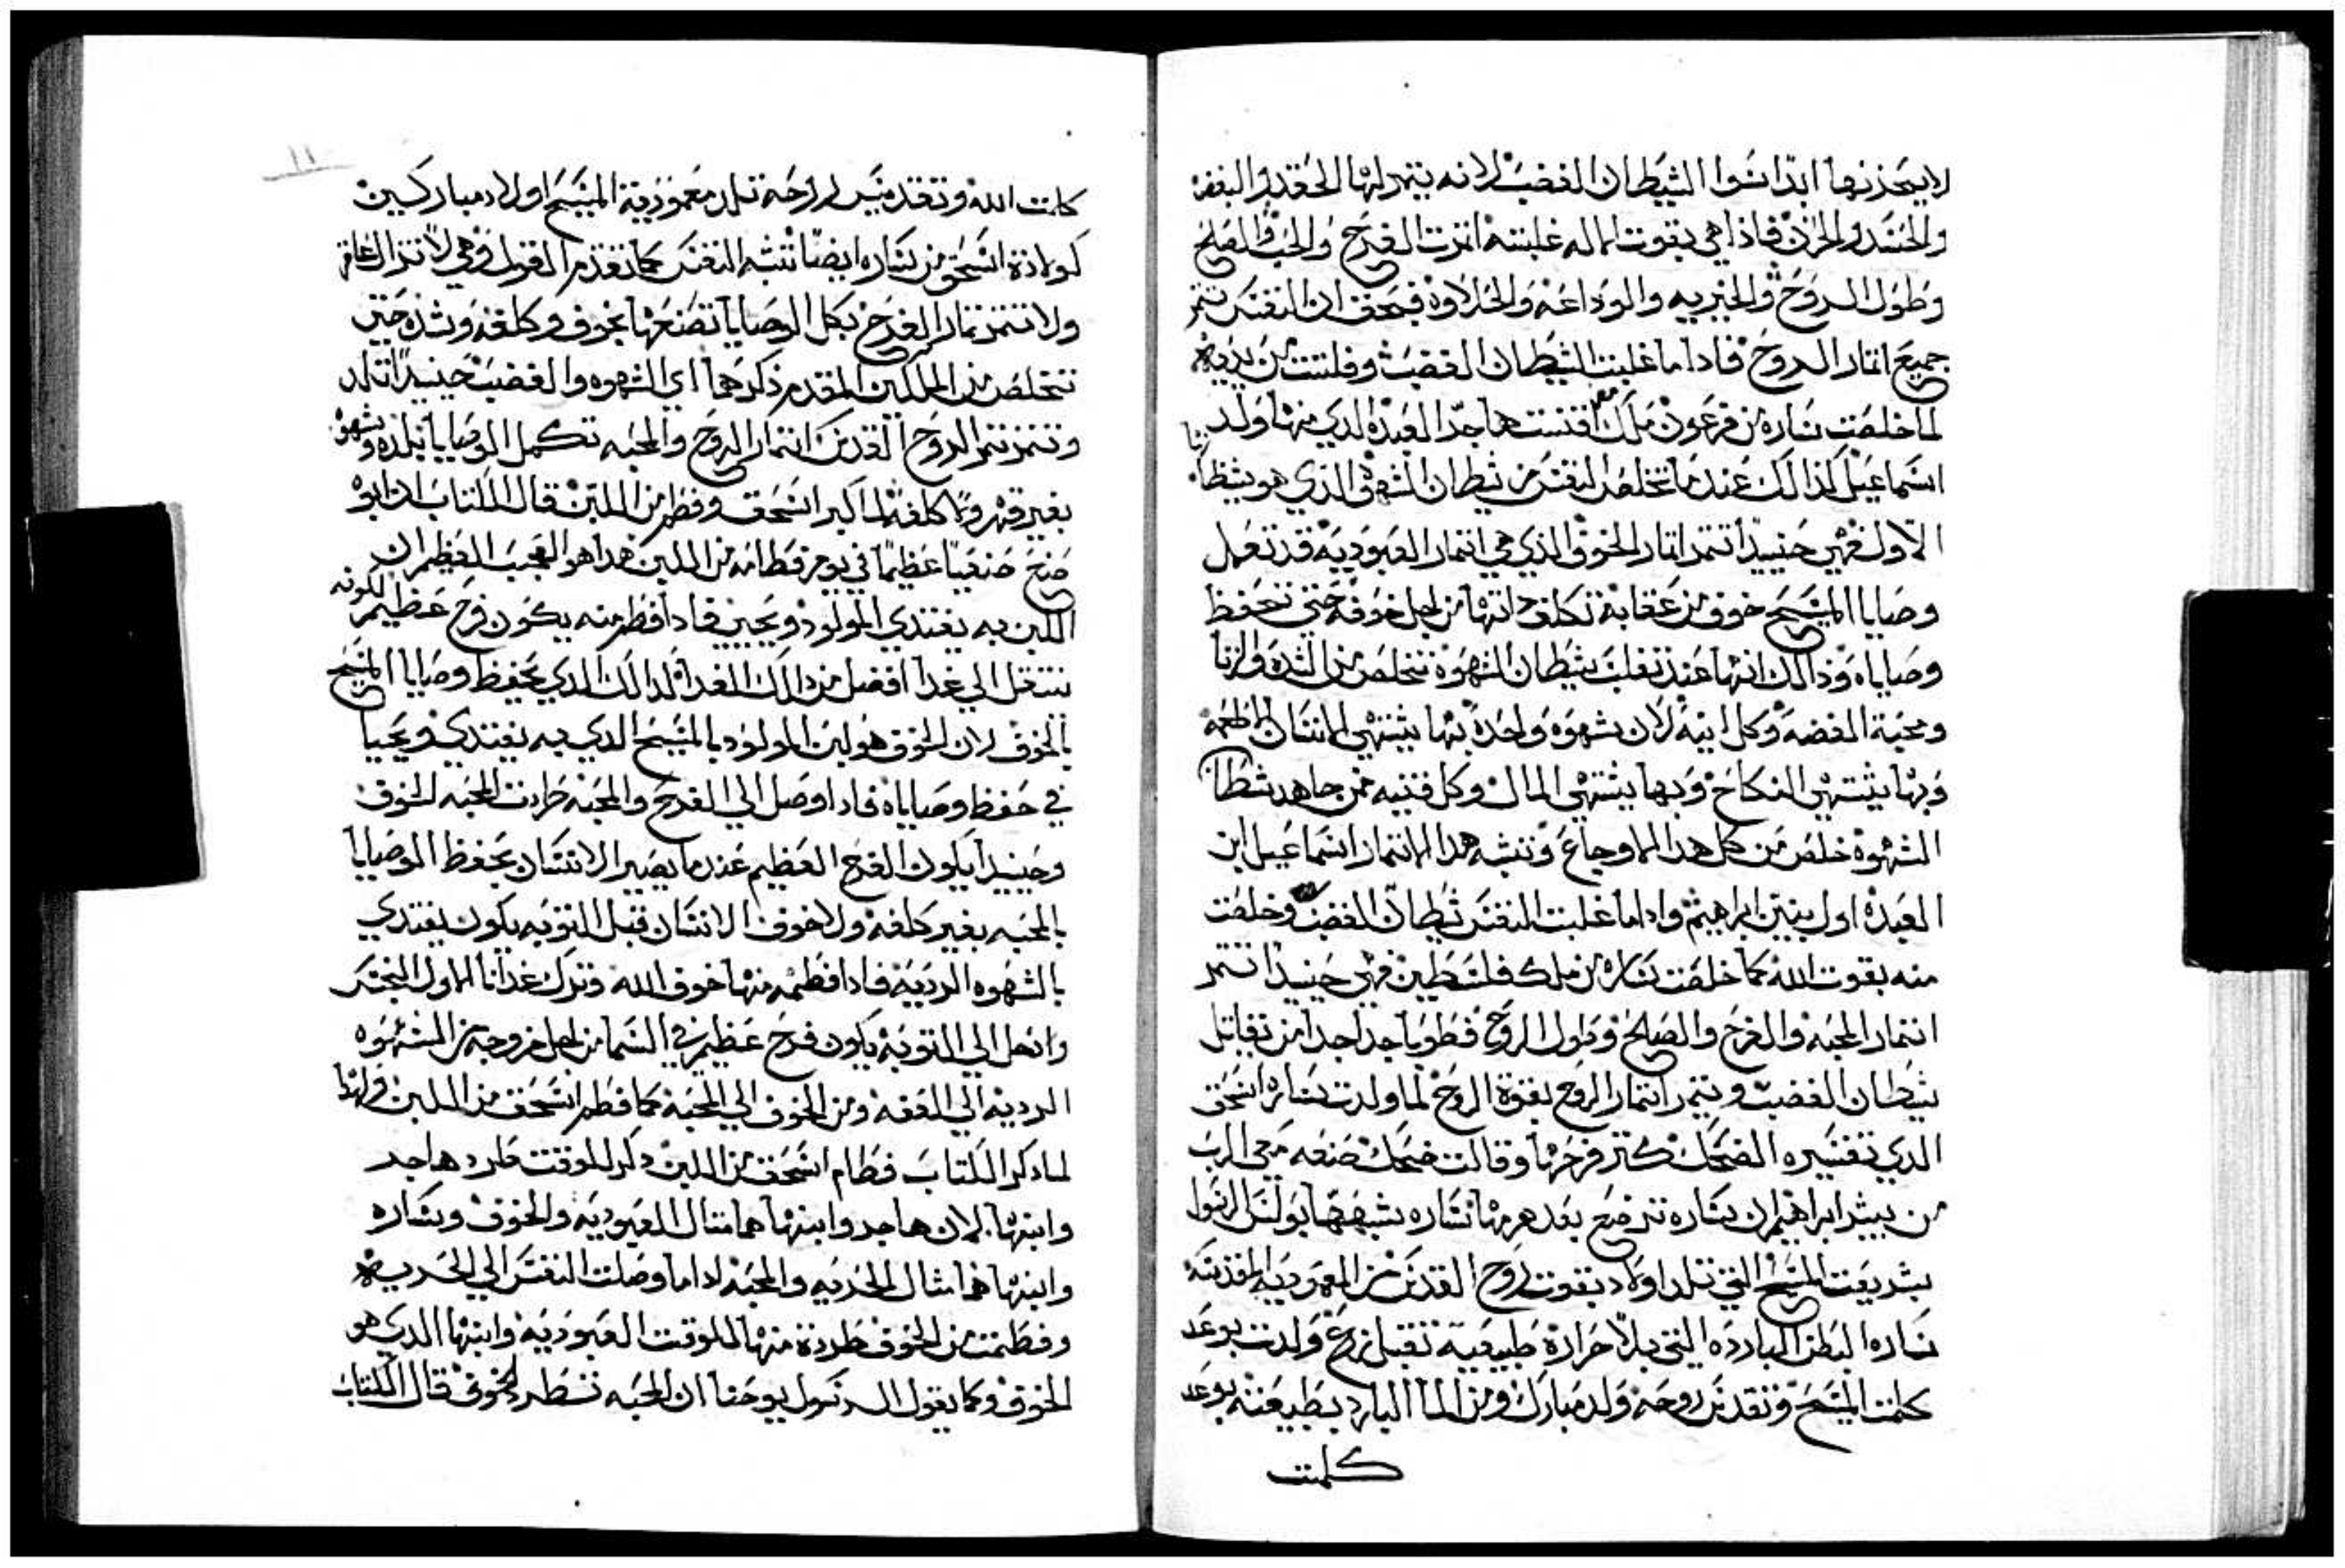 لا يحذرنها ابدا سوا الشيطان الغضب لانه يتمر لها الحقد والبغضه
والحسد والحزن فاذا هي بقوت الاله غلبته اتمرت الفرح والحب والصلح
وطول الروح والخيريه والوداعه والحلاوه فبحق ان النفس تتمر
جميع اتمار الروح فاذا ما غلبت الشيطان الغضب وفلتت من يديه
لما خلصت ساره من فرعون ملك مصر اقتنت هاجر العبده الذي منها ولد
اسماعيل كذالك عندما تخلص النفس من شيطان الشهوه الذي هو شيطان الزنا
الاول فهي حنيدا تتمر اتمار الخوف الذي هي اتمار العبوديه قد تعمل
وصايا المسيح خوف من عقابه تكلف داتها من اجل خوفه حتى تحفظ
وصاياه وذالك انها عند تغلب شيطان الشهوه تتخلص من الشره والزنا
ومحبة الفضه وكل انيه لان شهوه واحده بها يشتهي الانسان الاطعمه
وبها يشتهي النكاح وبها يشتهي المال وكل قنيه فمن جاهد شيطان
الشهوه خلص من كل هدا الاوجاع وتشبه هدا الاتمار اسماعيل ابن
العبده اول بنين ابراهيم وادا ما غلبت النفس شيطان الغضب وخلصت
منه بقوت الله كما خلصت ساره من ملك فلسطين فهي حنيدا تتمر
اتمار المحبه والفرح والصلح وطول الروح فطوبا جدا جدا من تقاتل
شيطان الغضب ويتمر اتمار الروح بقوة الروح لما ولدت ساره اسحق
الدي تفسيره الضحك كتر فرحها وقالت ضحك صنعه معي الرب
من يبشر ابراهيم ان ساره ترضع بعد هرمها ساره يشبهها بولس الرسول
بشريعت المسيح التي تلد اولاد بقوت روح القدس من المعموديه المقدسه
ساره البطن البارده التي بلا حراره طبيعيه تقبل زرع ولدت بوعد
كلمت المسيح وتقديس روحه ولد مبارك ومن الما البارد بطبيعته بوعد
كلمت
١١
كلمت الله وتقديس روحه تلد معمودية المسيح اولاد مباركين
كولادة اسحق من ساره ايضا تشبه النفس كما تقدم القول وهي لا تزال عاقر
ولا تتمر تمار الفرح بكل الوصايا تصنعها بخوف وكلفه وشده حتي
تتخلص من الملكين المقدم ذكرهما اي الشهوه والغضب حنيدا تلد
وتتمر تمر الروح القدس اتمار الروح والمحبه تكمل الوصايا بلده وشهوه
بغير قهر ولا كلفه لما كبر اسحق وفطم من اللبن قال الكتاب ان ابوه
صنع صنعيا عظيما في يوم فطامه من اللبن هدا هو العجب العظيم ان
اللبن به يغتدي المولود ويحيى فادا فطم منه يكون فرح عظيم لكونه
ينتقل الي غدا افضل من دالك الغدا كدالك الدي يحفظ وصايا المسيح
بالخوف لان الخوف هو لبن المولود بالمسيح الدي به يغتدي ويحيا
في حفظ وصاياه فادا وصل الي الفرح والمحبه طردت المحبه الخوف
وحنيدا يكون الفرح العظيم عندما يصير الانسان يحفظ الوصايا
بالمحبه بغير كلفه ولا خوف الانسان قبل التوبه يكون يغتدي
بالشهوه الرديه فادا فطمه منها خوف الله وترك غداه الاول النجس
وانتقل الي التوبه يكون فرح عظيم في السما من اجل خروجه من الشهوه
الرديه الي العفه ومن الخوف الي المحبه كما فطم اسحق من اللبن ولهدا
لما دكر الكتاب فطام اسحق من اللبن دكر للوقت طرد هاجر
وابنها لان هاجر وابنها هما متال العبوديه والخوف وساره
وابنها هما متال الحريه والمحبه ادا ما وصلت النفس الي الحريه
وفطمت من الخوف طردة منها للوقت العبوديه وابنها الدي هو
الخوف وكما يقول الرسول يوحنا ان المحبه تطرد الخوف قال الكتاب